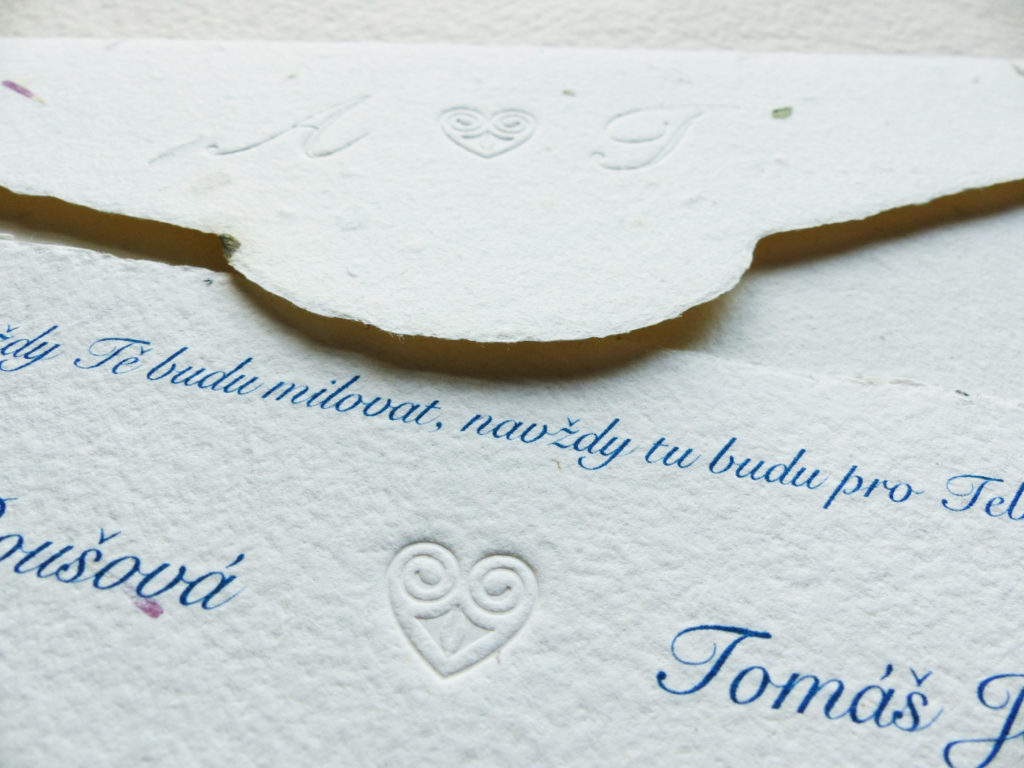 A T
ždy Tě budu milovat, navždy tu budu pro Teb
oušová
Tomáš J